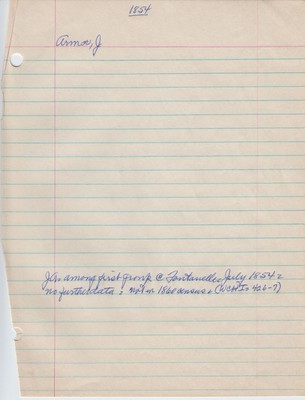 1854
Armor, J
JA is among first group @ Fontanelle, July 1854 :
no further data : not in 1860 census : (WCHI: 426-7)